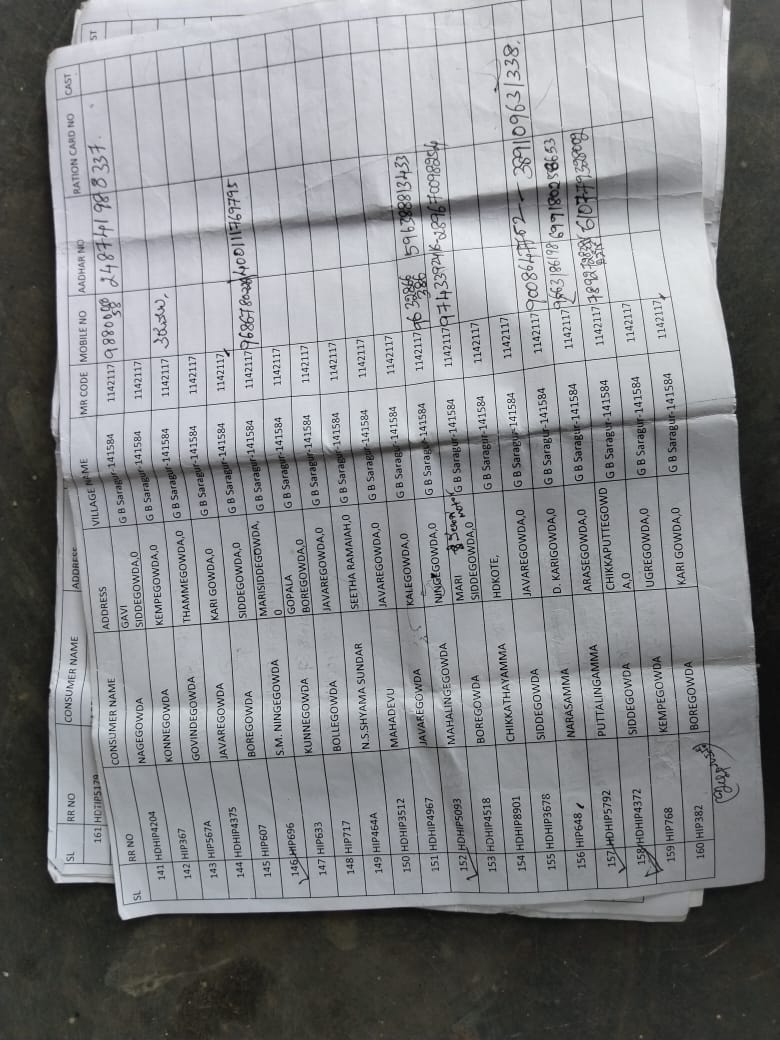 SL RR NO CONSUMER NAME ADDRESS ST
161 HDHIP5179
SL RR NO CONSUMER NAME ADDRESS VILLAGE NAME MR CODE MOBILE NO AADHAR NO RATION CARD NO CAST
141 HDHIP4204 NAGEGOWDA GAVI SIDDEGOWDA,0 G B Saragur-141584 1142117 248741988337.
142 HIP367 KONNEGOWDA KEMPEGOWDA,0 G B Saragur-141584 1142117
143 HIP567A GOVINDEGOWDA THAMMEGOWDA,0 G B Saragur-141584 1142117
144 HDHIP4375 JAVAREGOWDA KARI GOWDA,0 G B Saragur-141584 1142117
145 HIP607 BOREGOWDA SIDDEGOWDA,0 G B Saragur-141584 1142117
146 HIP696 S.M. NINGEGOWDA MARISIDDEGOWDA,0 G B Saragur-141584 1142117 400111769795
147 HIP633 KUNNEGOWDA GOPALA BOREGOWDA,0 G B Saragur-141584 1142117
148 HIP717 BOLLEGOWDA JAVAREGOWDA,0 G B Saragur-141584 1142117
149 HIP464A N.S.SHYAMA SUNDAR SEETHA RAMAIAH,0 G B Saragur-141584 1142117
150 HDHIP3512 MAHADEVU JAVAREGOWDA,0 G B Saragur-141584 1142117
151 HDHIP4967 JAVAREGOWDA KALEGOWDA,0 G B Saragur-141584 1142117
152 HDHIP5093 MAHALINGEGOWDA NINGEGOWDA,0 G B Saragur-141584 1142117 596388813433
153 HDHIP4518 BOREGOWDA MARI SIDDEGOWDA,0 G B Saragur-141584 1142117 9743392416-289670098254
154 HDHIP8901 CHIKKATHAYAMMA HDKOTE, G B Saragur-141584 1142117
155 HDHIP3678 SIDDEGOWDA JAVAREGOWDA,0 G B Saragur-141584 1142117
156 HIP648 NARASAMMA D. KARIGOWDA,0 G B Saragur-141584 1142117 9008647752 - 389109631338.
157 HDHIP5792 PUTTALINGAMMA ARASEGOWDA,0 G B Saragur-141584 1142117 9663186198 699180258653
158 HDHIP4372 SIDDEGOWDA CHIKKAPUTTEGOWDA,0 G B Saragur-141584 1142117 610779328002
159 HIP768 KEMPEGOWDA UGREGOWDA,0 G B Saragur-141584 1142117
160 HIP382 BOREGOWDA KARI GOWDA,0 G B Saragur-141584 1142117